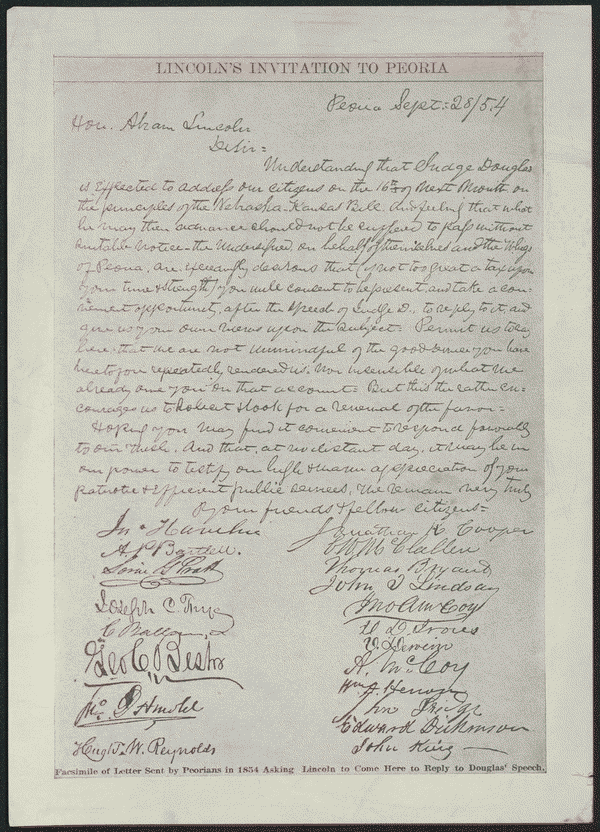 LINCOLN'S INVITATION TO PEORIA
Peoria Sept: 28/54
Hon. Abram Lincoln
Dr Sir =
Understanding that Judge Douglas
is Expected to address our citizens on the 16th of Next Month on
the principles of the Nebraska-Kansas Bill. And feeling that what
he may then advance should not be suffered to pass without
suitable notice - the Undersigned, on behalf of themselves and the Whigs
of Peoria, are exceedingly desirous that (if not too great a tax upon
your time & strength) you will consent to be present, and take a con-
venient opportunity, after the speech of Judge D., to reply to it, and
give us your own views upon the subject = Permit us to say
here, that we are not unmindful of the good service you have
heretofore repeatedly rendered us: Nor insensible of what we
already owe you on that account = But this the rather en-
courages us to & look for a renewal of the favor =
Hoping you may find it convenient to respond favorably
to our wish. And that, at no distant day, it may be in
our power to testify our high & warm appreciation of your
patriotic & Efficient public services, We remain very truly
your friends & fellow citizens =
Jonathan K. Cooper
A. P. Bartlett.
Wm McClallen
Thomas Bryant
John T Lindsay
Joseph C. Frye
Jno A McCoy
Geo C. Bestor
A. McCoy
Arnold
Edward Dickinson
Hugh W. Reynolds
John King
Facsimile of Letter Sent by Peorians in 1854 Asking Lincoln to Come Here to Reply to Douglas' Speech.